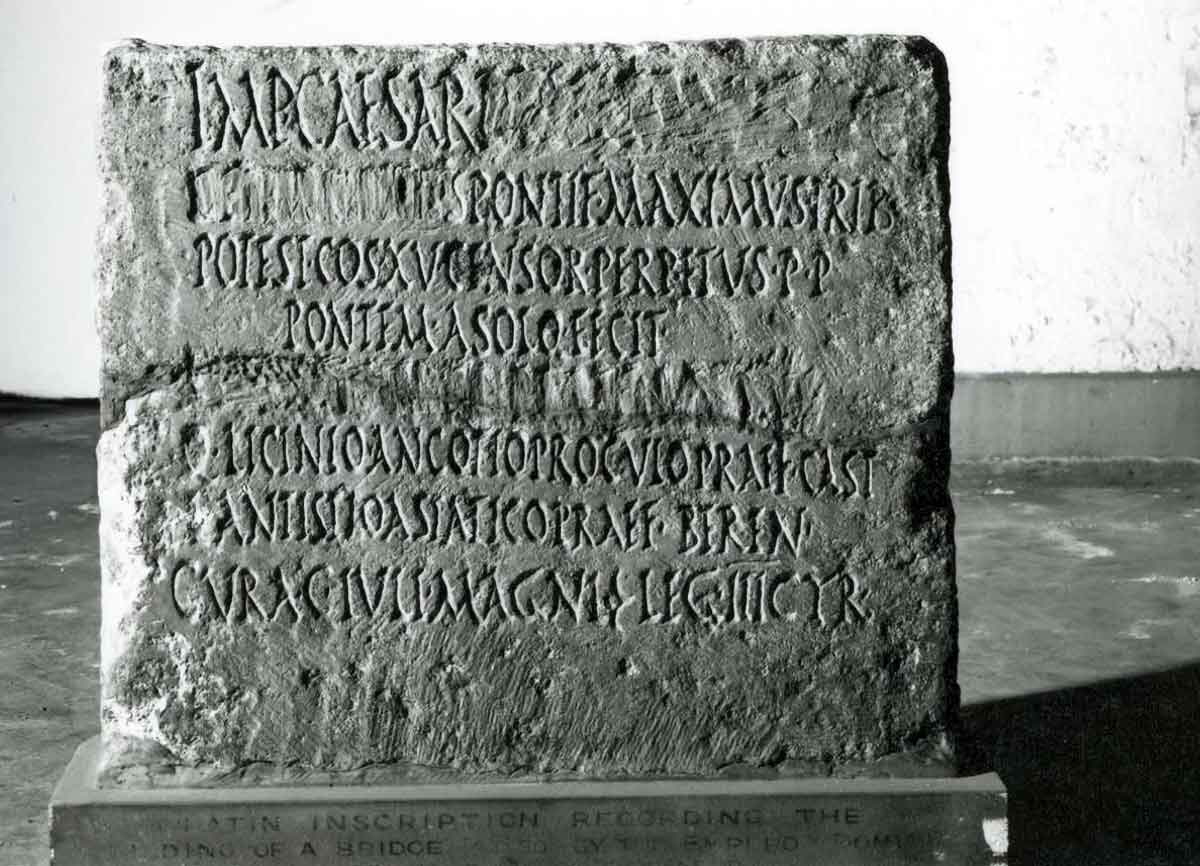 IMP CAESAR
PONTIF MAXIMVS TRIB
POTEST·COS XV CENSOR·PERPETVS·P·P
PONTEM·A SOLO FECIT
Q LICINIO ANCOTIO PROCVLO PRAEF·CAST
ANTISTIO ASIATICO PRAEF·BEREN
CVRA C·IVLI MAGNI LEG·III CYR
LATIN INSCRIPTION RECORDING THE
OF A BRIDGE BY THE EMPEROR